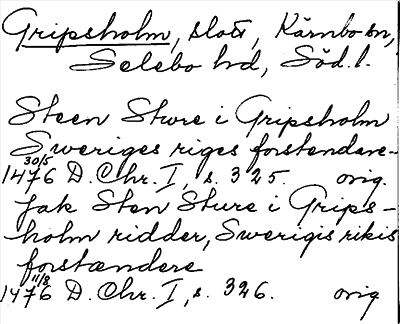 Gripsholm, slott, Kärnbo sn,
Selebo hd, Söd. l.
Steen Sture i Gripsholm
Sweriges riges forstendare
30/5
1476 D. Chr. I, s. 325. orig.
Jak Sten Sture i Grips-
holm ridder, Swerigis rikis
forstændere
11/8
1476 D. Chr. I, s. 326. orig